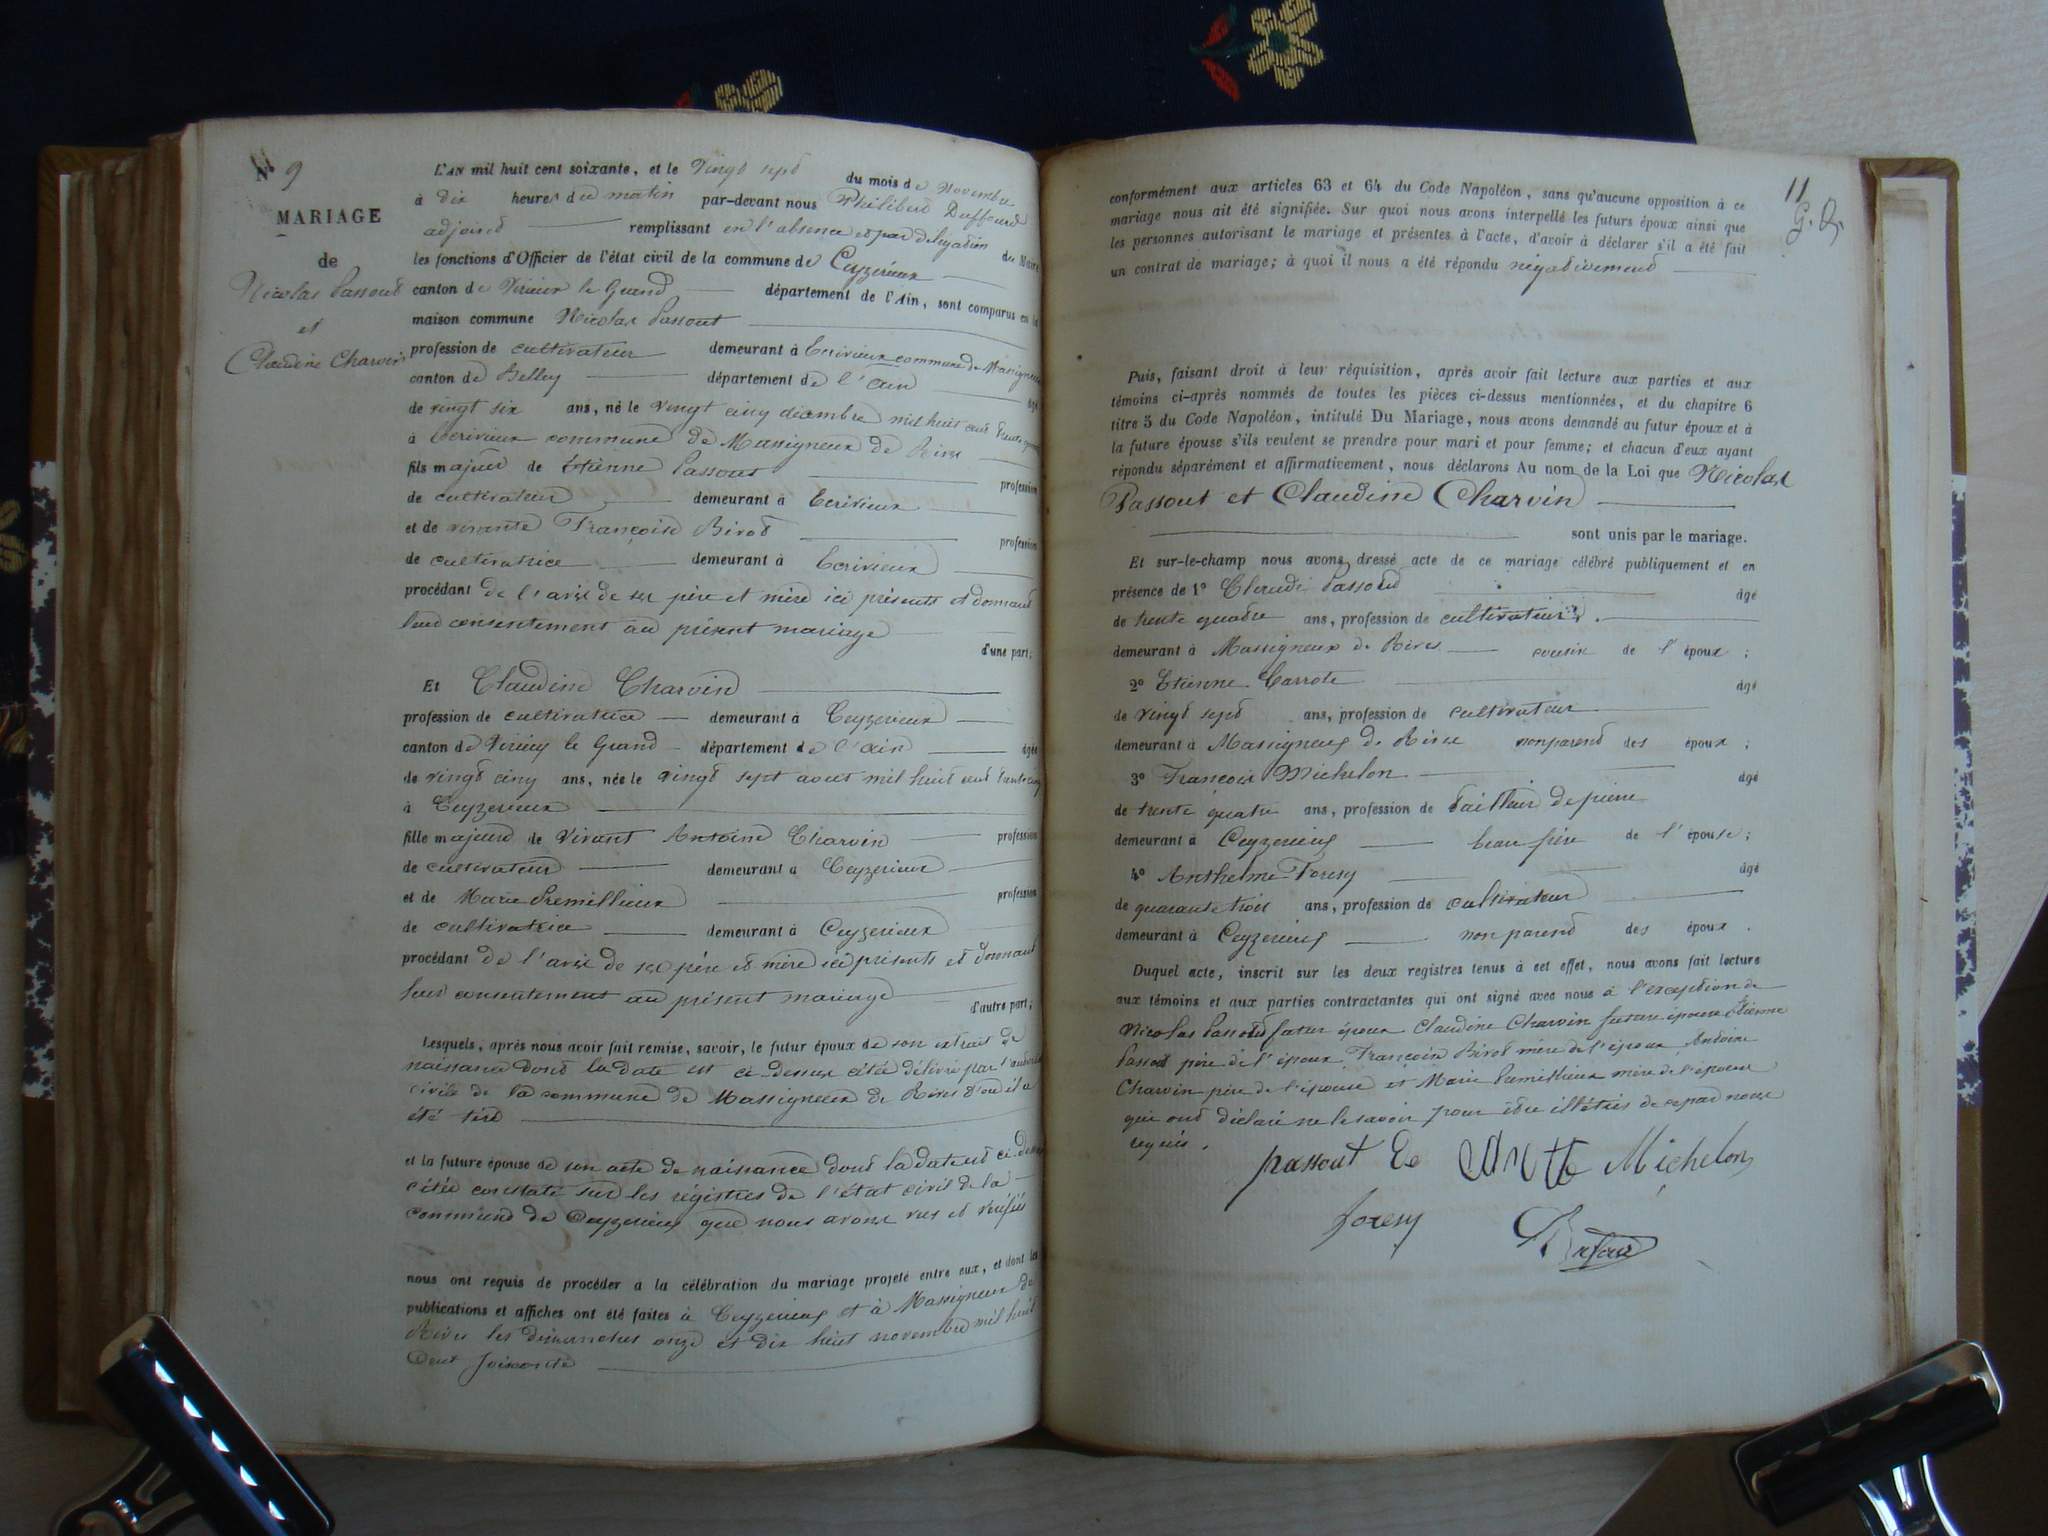 N° 9
MARIAGE
de
Nicolas Passout
et
Claudine Charvin
L'AN mil huit cent soixante, et le Vingt sept du mois de Novembre
à dix heures du matin par-devant nous Philibert Duffourd
adjoint remplissant en l'absence et par delegation du Maire
les fonctions d'Officier de l'état civil de la commune de Ceyzerieux
canton de Virieux le Grand département de l'Ain, sont comparus en la
maison commune Nicolas Passout
profession de cultivateur demeurant à Ecrivieux commune de Massignieux
canton de Belley département de l'ain âgé
de vingt six ans, né le vingt cinq décembre mil huit cent trente
à Ecrivieux commune de Massigneux de Rives
fils majeur de Etienne Passout profession
de cultivateur demeurant à Ecrivieux
et de vivante Françoise Birot profession
de cultivatrice demeurant à Ecrivieux
procédant de l'avis de ses père et mère ici présents et donnant
leur consentement au présent mariage
d'une part;
Et Claudine Charvin
profession de cultivatrice demeurant à Ceyzerieux
canton de Virieux le Grand département de l'ain âgée
de vingt cinq ans, née le vingt sept aout mil huit cent trente cinq
à Ceyzerieux
fille majeure de Vivant Antoine Charvin profession
de cultivateur demeurant à Ceyzerieux
et de Marie Premillieux profession
de cultivatrice demeurant à Ceyzerieux
procédant de l'avis de ses père et mère ici présents et donnant
leur consentement au présent mariage
d'autre part;
Lesquels, après nous avoir fait remise, savoir, le futur époux de son extrait de
naissance dont la date est ci dessus citée délivré par l'autorité
civile de la commune de Massigneux de Rives d'où il a
été tiré
et la future épouse de son acte de naissance dont la date est ci-dessus
citée constaté sur les régistres de l'état civil de la
commune de Ceyzerieux que nous avons vus et vérifiés
nous ont requis de procéder à la célébration du mariage projeté entre eux, et dont les
publications et affiches ont été faites à Ceyzerieux et à Massigneux de
Rives les dimanches onze et dix huit novembre mil huit
Cent soixante
11
G. D.
conformément aux articles 63 et 64 du Code Napoléon, sans qu'aucune opposition à ce
mariage nous ait été signifiée. Sur quoi nous avons interpellé les futurs époux ainsi que
les personnes autorisant le mariage et présentes à l'acte, d'avoir à déclarer s'il a été fait
un contrat de mariage; à quoi il nous a été répondu négativement
Puis, faisant droit à leur réquisition, après avoir fait lecture aux parties et aux
témoins ci-après nommés de toutes les pièces ci-dessus mentionnées, et du chapitre 6
titre 5 du Code Napoléon, intitulé Du Mariage, nous avons demandé au futur époux et à
la future épouse s'ils veulent se prendre pour mari et pour femme; et chacun d'eux ayant
répondu séparément et affirmativement, nous déclarons Au nom de la Loi que Nicolas
Passout et Claudine Charvin
sont unis par le mariage.
Et sur-le-champ nous avons dressé acte de ce mariage célébré publiquement et en
présence de 1° Claude Passout âgé
de trente quatre ans, profession de cultivateur
demeurant à Massigneux de Rives cousin de l'époux;
2° Etienne Carrote âgé
de vingt sept ans, profession de cultivateur
demeurant à Massigneux de Rives non parent des époux;
3° François Michelon âgé
de trente quatre ans, profession de tailleur de pierre
demeurant à Ceyzerieux beau frère de l'épouse;
4° Anthelme Foresy âgé
de quarante trois ans, profession de cultivateur
demeurant à Ceyzerieux non parent des époux.
Duquel acte, inscrit sur les deux registres tenus à cet effet, nous avons fait lecture
aux témoins et aux parties contractantes qui ont signé avec nous à l'exception de
Nicolas Passout futur époux Claudine Charvin future épouse Etienne
Passout père de l'époux Françoise Birot mère de l'époux Antoine
Charvin père de l'épouse et Marie Premillieux mère de l'épouse
qui ont déclaré ne le savoir pour être illétrés de ce par nous
requis.
passout Michelon
foresy